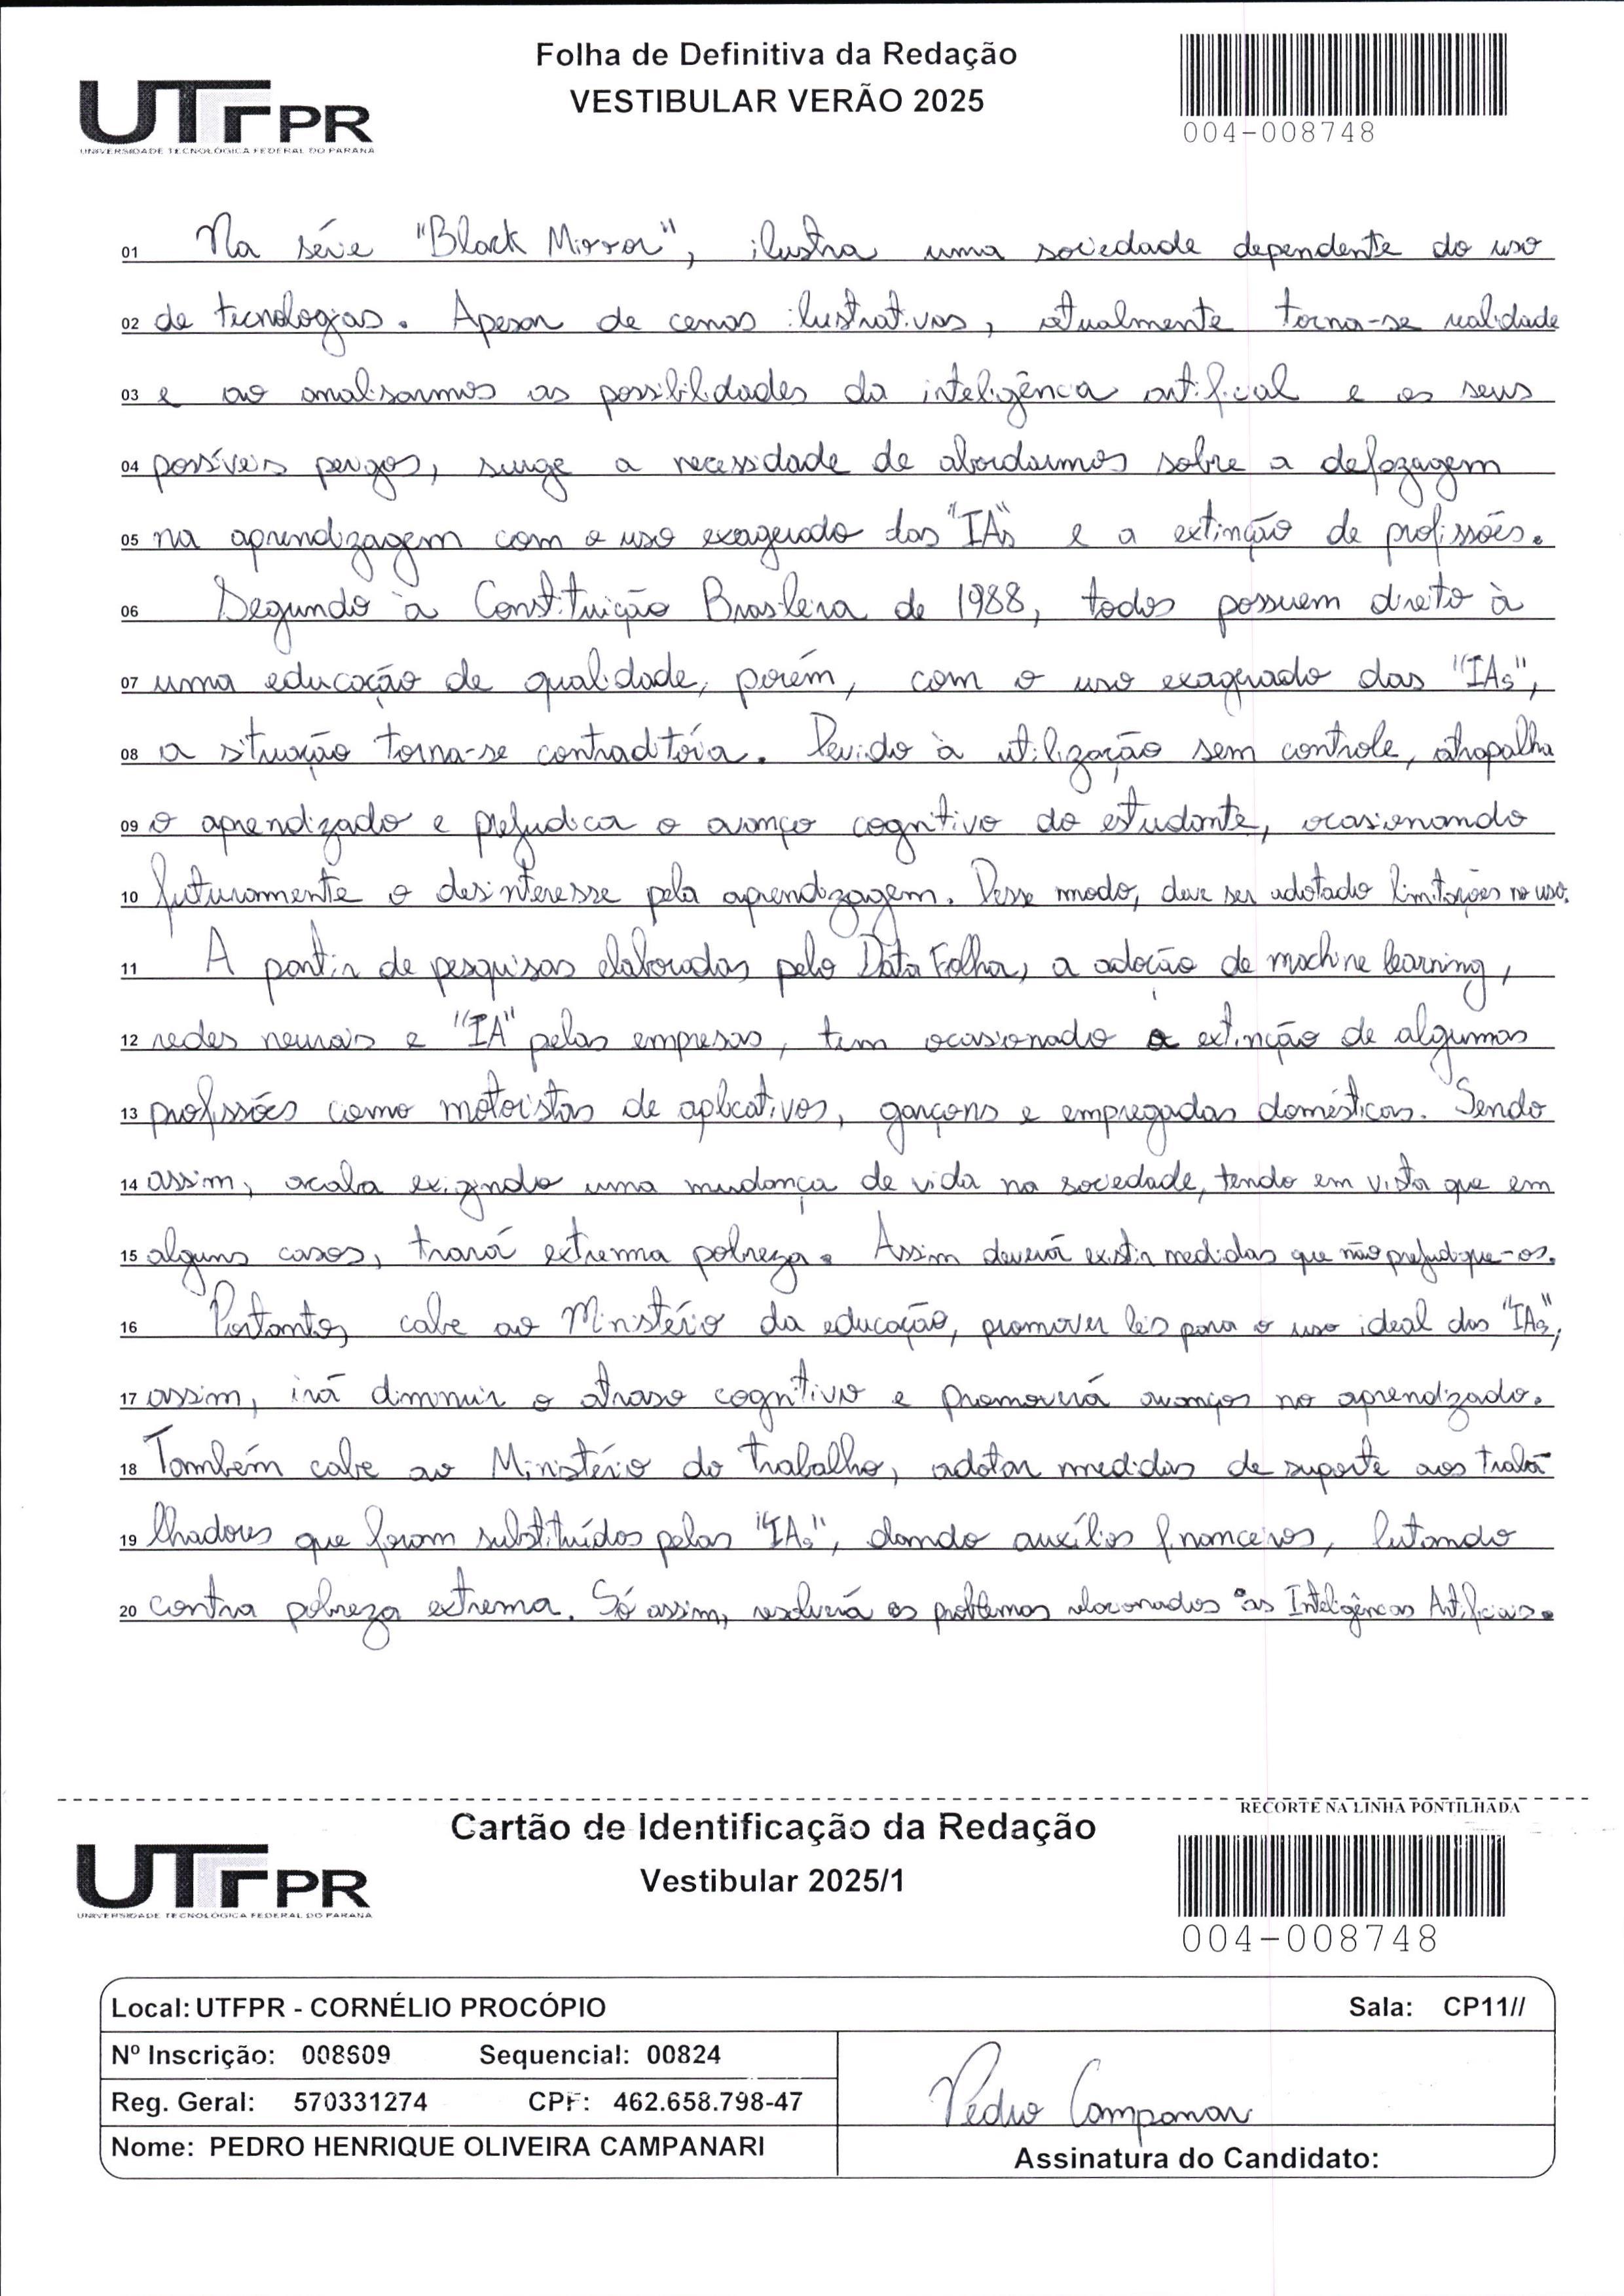 Folha de Definitiva da Redação
VESTIBULAR VERÃO 2025
UTFPR
UNIVERSIDADE TECNOLÓGICA FEDERAL DO PARANÁ
004-008748
01 Na série "Black Mirror", ilustra uma sociedade dependente do uso
02 de tecnologias. Apesar de cenas ilustrativas, atualmente torna-se realidade
03 e ao analisarmos as possibilidades da inteligência artificial e os seus
04 possíveis perigos, surge a necessidade de abordarmos sobre a defazagem
05 na aprendizagem com o uso exagerado das "IAs" e a extinção de profissões.
06 Segundo à Constituição Brasileira de 1988, todos possuem direito à
07 uma educação de qualidade, porém, com o uso exagerado das "IAs",
08 a situação torna-se contraditória. Devido à utilização sem controle, atrapalha
09 o aprendizado e prejudica o avanço cognitivo do estudante, ocasionando
10 futuramente o desinteresse pela aprendizagem. Desse modo, deve ser adotado limitações no uso.
11 A partir de pesquisas elaboradas pelo Data Folha, a adoção de machine learning,
12 redes neurais e "IA" pelas empresas, tem ocasionado a extinção de algumas
13 profissões como motoristas de aplicativos, garçons e empregadas domésticas. Sendo
14 assim, acaba exigindo uma mudança de vida na sociedade, tendo em vista que em
15 alguns casos, trará extrema pobreza. Assim deverá existir medidas que não prejudique-os.
16 Portanto, cabe ao Ministério da educação, promover leis para o uso ideal das "IAs",
17 assim, irá diminuir o atraso cognitivo e promoverá avanços no aprendizado.
18 Também cabe ao Ministério do trabalho, adotar medidas de suporte aos traba-
19 lhadores que foram substituídos pelas "IAs", dando auxílios financeiros, lutando
20 contra pobreza extrema. Só assim, resolverá os problemas relacionados às Inteligências Artificiais.
RECORTE NA LINHA PONTILHADA
Cartão de Identificação da Redação
Vestibular 2025/1
UTFPR
UNIVERSIDADE TECNOLÓGICA FEDERAL DO PARANÁ
004-008748
Local: UTFPR - CORNÉLIO PROCÓPIO Sala: CP11//
Nº Inscrição: 008509 Sequencial: 00824
Reg. Geral: 570331274 CPF: 462.658.798-47
Pedro Campanari
Nome: PEDRO HENRIQUE OLIVEIRA CAMPANARI
Assinatura do Candidato: